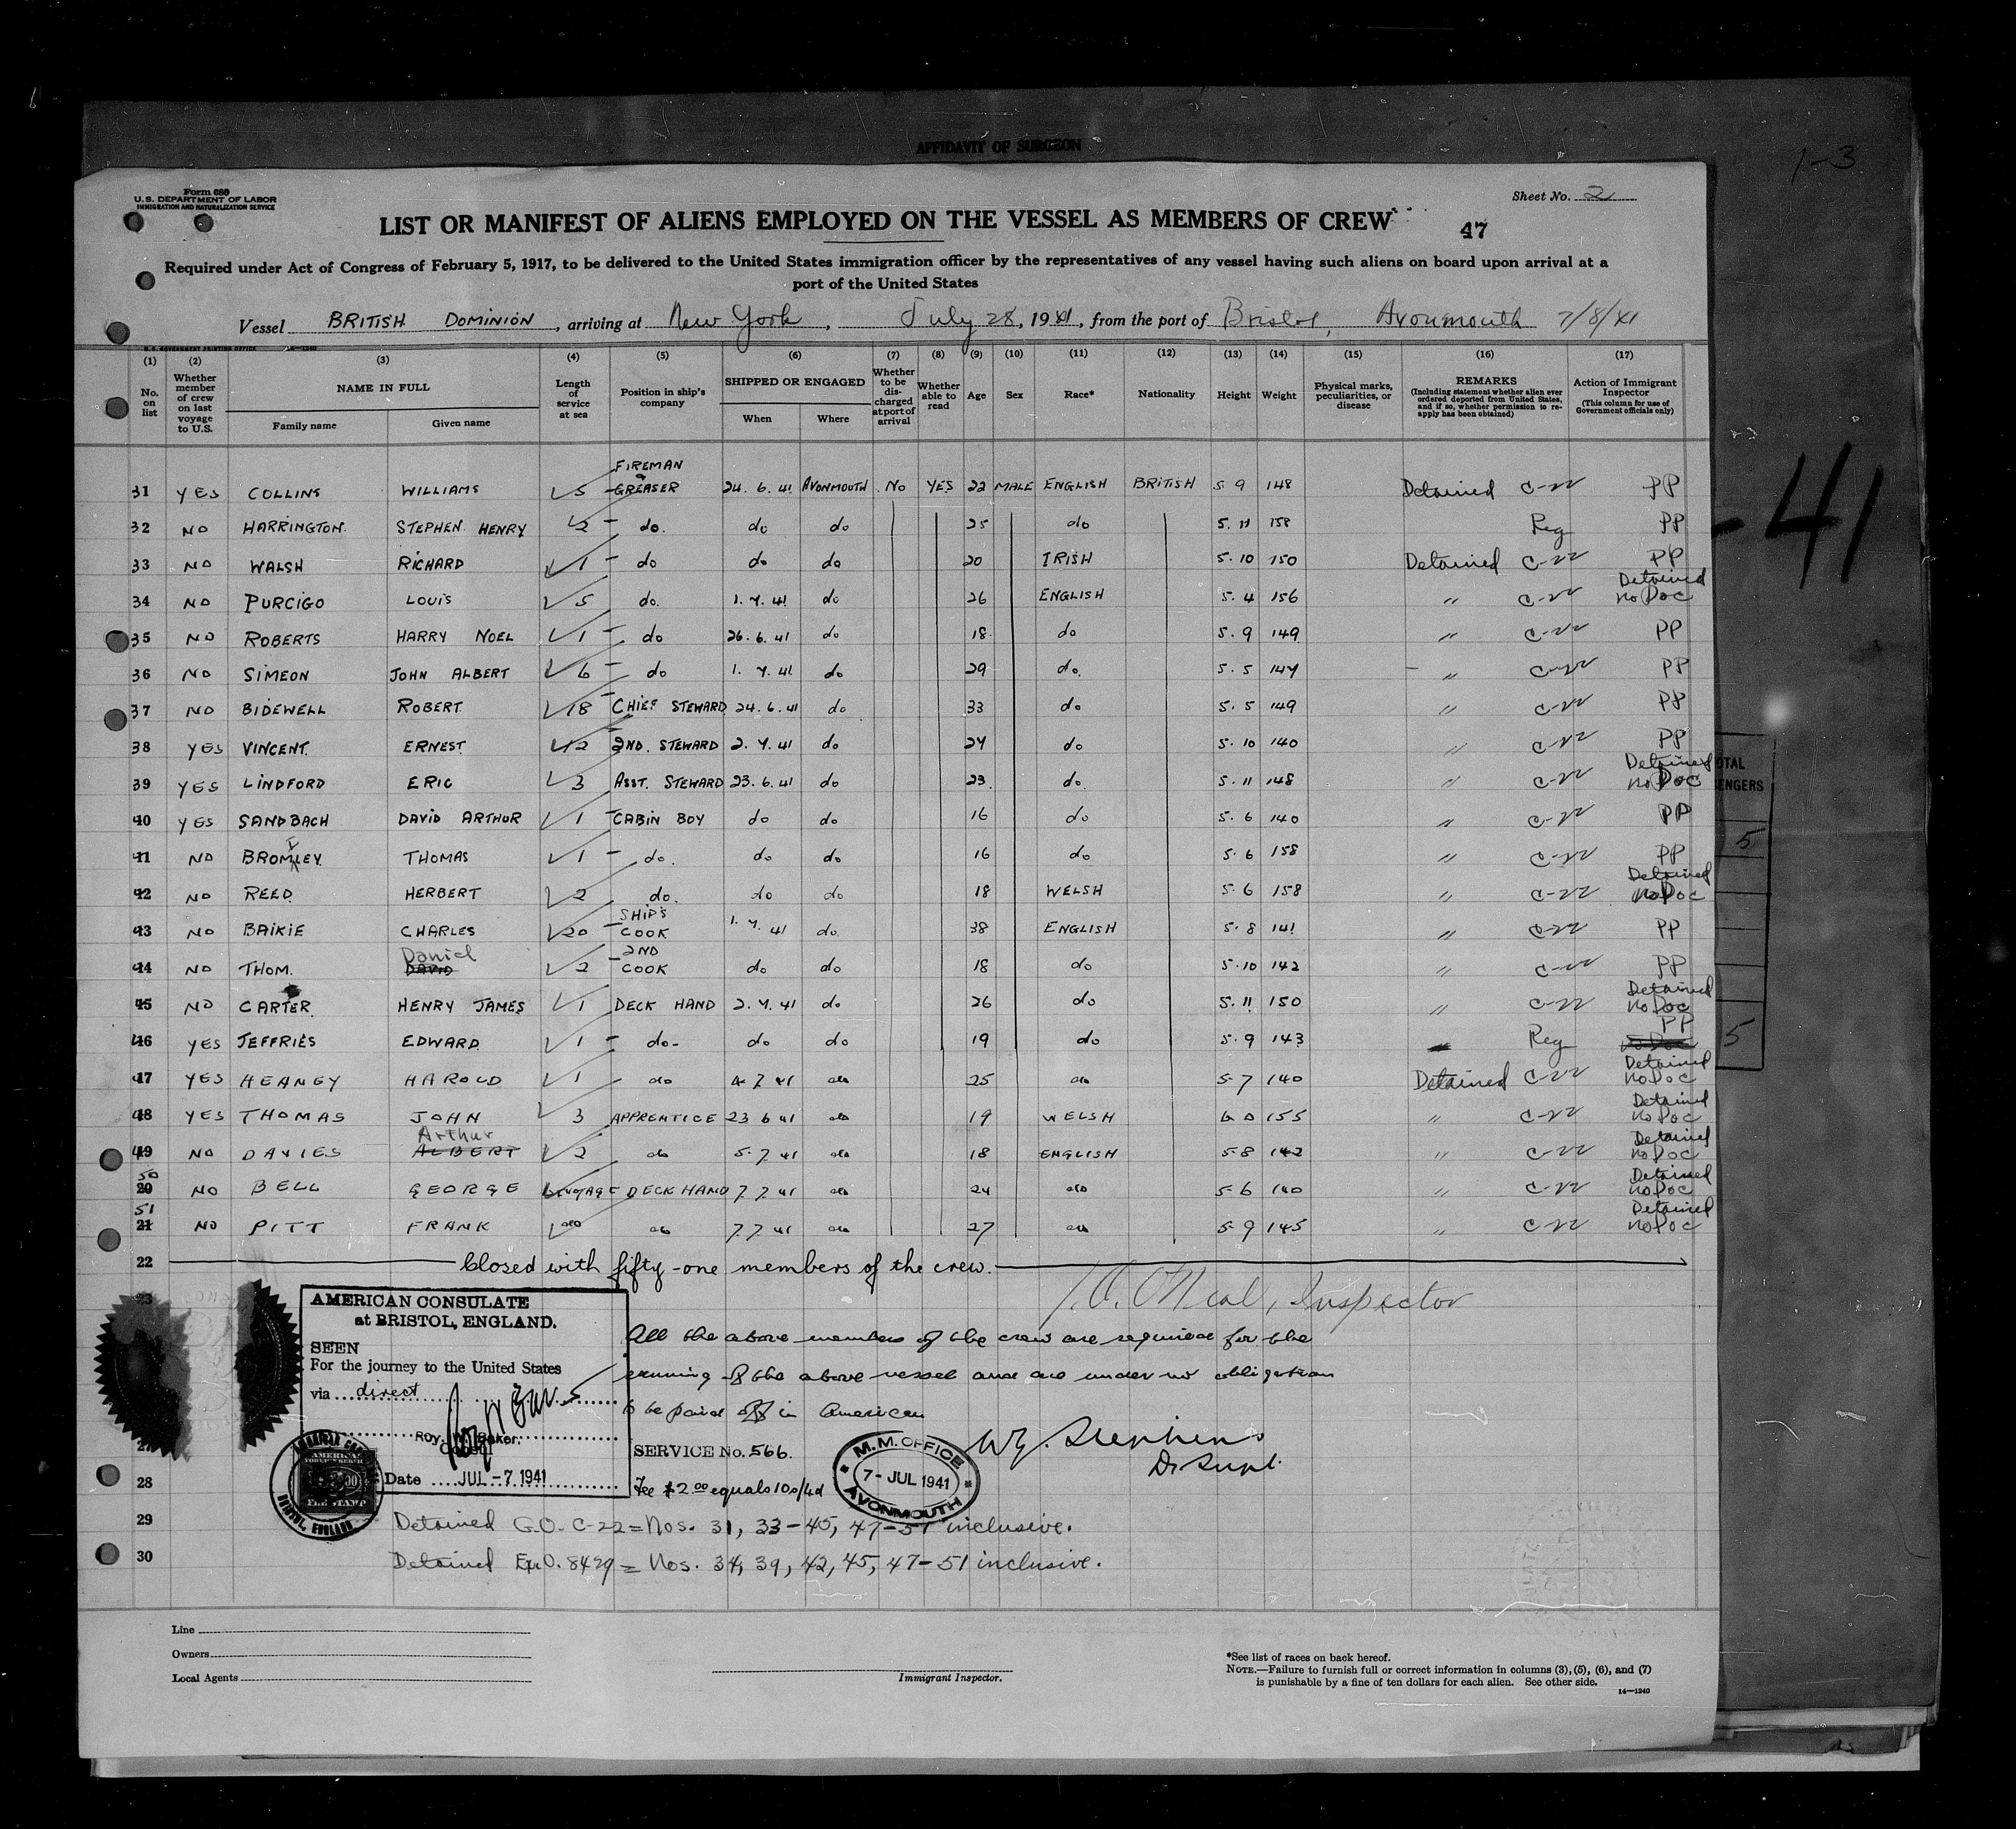 AFFIDAVIT OF SURGEON
1-3
Form 680
U.S. DEPARTMENT OF LABOR
IMMIGRATION AND NATURALIZATION SERVICE
Sheet No. 2
LIST OR MANIFEST OF ALIENS EMPLOYED ON THE VESSEL AS MEMBERS OF CREW
47
Required under Act of Congress of February 5, 1917, to be delivered to the United States immigration officer by the representatives of any vessel having such aliens on board upon arrival at a
port of the United States
Vessel BRITISH DOMINION, arriving at New York, July 28, 1941, from the port of Bristol, Avonmouth 7/8/41
U.S. GOVERNMENT PRINTING OFFICE 14-1240
(1) (2) (3) (4) (5) (6) (7) (8) (9) (10) (11) (12) (13) (14) (15) (16) (17)
No. on list
Whether member of crew on last voyage to U.S.
NAME IN FULL
Family name
Given name
Length of service at sea
Position in ship's company
SHIPPED OR ENGAGED
When
Where
Whether to be discharged at port of arrival
Whether able to read
Age
Sex
Race*
Nationality
Height
Weight
Physical marks, peculiarities, or disease
REMARKS
(Including statement whether alien ever ordered deported from United States, and if so, whether permission to reapply has been obtained)
Action of Immigrant Inspector
(This column for use of Government officials only)
31 YES COLLINS WILLIAMS 5 FIREMAN & GREASER 24.6.41 AVONMOUTH No YES 22 MALE ENGLISH BRITISH 5 9 148 Detained C-22 PP
32 NO HARRINGTON STEPHEN HENRY 2 do. do do 25 do 5.11 158 Reg PP
33 NO WALSH RICHARD 1 do do do 20 IRISH 5.10 150 Detained C-22 PP
34 NO PURCIGO LOUIS 5 do. 1.7.41 do 26 ENGLISH 5.4 156 " C-22 Detained no Doc
35 NO ROBERTS HARRY NOEL 1 do 26.6.41 do 18 do 5.9 149 " C-22 PP
36 NO SIMEON JOHN ALBERT 6 do 1.7.41 do 29 do. 5.5 147 " C-22 PP
37 NO BIDEWELL ROBERT 18 CHIEF STEWARD 24.6.41 do 33 do 5.5 149 " C-22 PP
38 YES VINCENT. ERNEST 12 2ND. STEWARD 2.7.41 do 27 do 5.10 140 " C-22 PP
39 YES LINDFORD ERIC 3 ASST. STEWARD 23.6.41 do 23 do. 5.11 148 " C-22 Detained no Doc
40 YES SANDBACH DAVID ARTHUR 1 CABIN BOY do do 16 do 5.6 140 " C-22 PP
41 NO BROMLEY THOMAS 1 do. do do 16 do 5.6 158 " C-22 PP
42 NO REED HERBERT 2 do. do do 18 WELSH 5.6 158 " C-22 Detained no Doc
43 NO BAIKIE CHARLES 20 SHIP'S COOK 1.7.41 do. 38 ENGLISH 5.8 141 " C-22 PP
44 NO THOM. DAVID Daniel 2 2ND COOK do do 18 do 5.10 142 " C-22 PP
45 NO CARTER HENRY JAMES 1 DECK HAND 2.7.41 do 26 do 5.11 150 " C-22 Detained no Doc
46 YES JEFFRIES EDWARD 1 do- do do 19 do 5.9 143 Reg PP no Doc
47 YES HEANEY HAROLD 1 do 4 7 41 do 25 do 5-7 140 Detained C-22 Detained no Doc
48 YES THOMAS JOHN 3 APPRENTICE 23 6 41 do 19 WELSH 6 0 155 " C-22 Detained no Doc
49 NO DAVIES ALBERT Arthur 2 do 5.7.41 do 18 ENGLISH 5-8 142 " C-22 Detained no Doc
50 20 NO BELL GEORGE 1 VOYAGE DECK HAND 7.7.41 do 24 do 5-6 140 " C-22 Detained no Doc
51 21 NO PITT FRANK do do 7.7.41 do 27 do 5-9 145 " C-22 Detained no Doc
22 Closed with fifty-one members of the crew.
O'Neal, Inspector
23
AMERICAN CONSULATE
at BRISTOL, ENGLAND.
SEEN
For the journey to the United States
via direct
Roy W. Baker.
Consul
Date JUL -7 1941
All the above members of the crew are required for the
running of the above vessel and are under no obligation
to be paid off in American
SERVICE No. 566.
Fee $2.00 equals 10s/4d
M.M. OFFICE
7- JUL 1941
AVONMOUTH
W.J. Stephens
D. Supt.
AMERICAN
FEE STAMP
BRISTOL, ENGLAND
28
29 Detained G.O. C-22 = Nos. 31, 33-45, 47-51 inclusive.
30 Detained Ex.O. 8429 = Nos. 34, 39, 42, 45, 47-51 inclusive.
Line
Owners
Local Agents
Immigrant Inspector.
*See list of races on back hereof.
NOTE.—Failure to furnish full or correct information in columns (3), (5), (6), and (7)
is punishable by a fine of ten dollars for each alien. See other side.
14-1240
-41
5
5